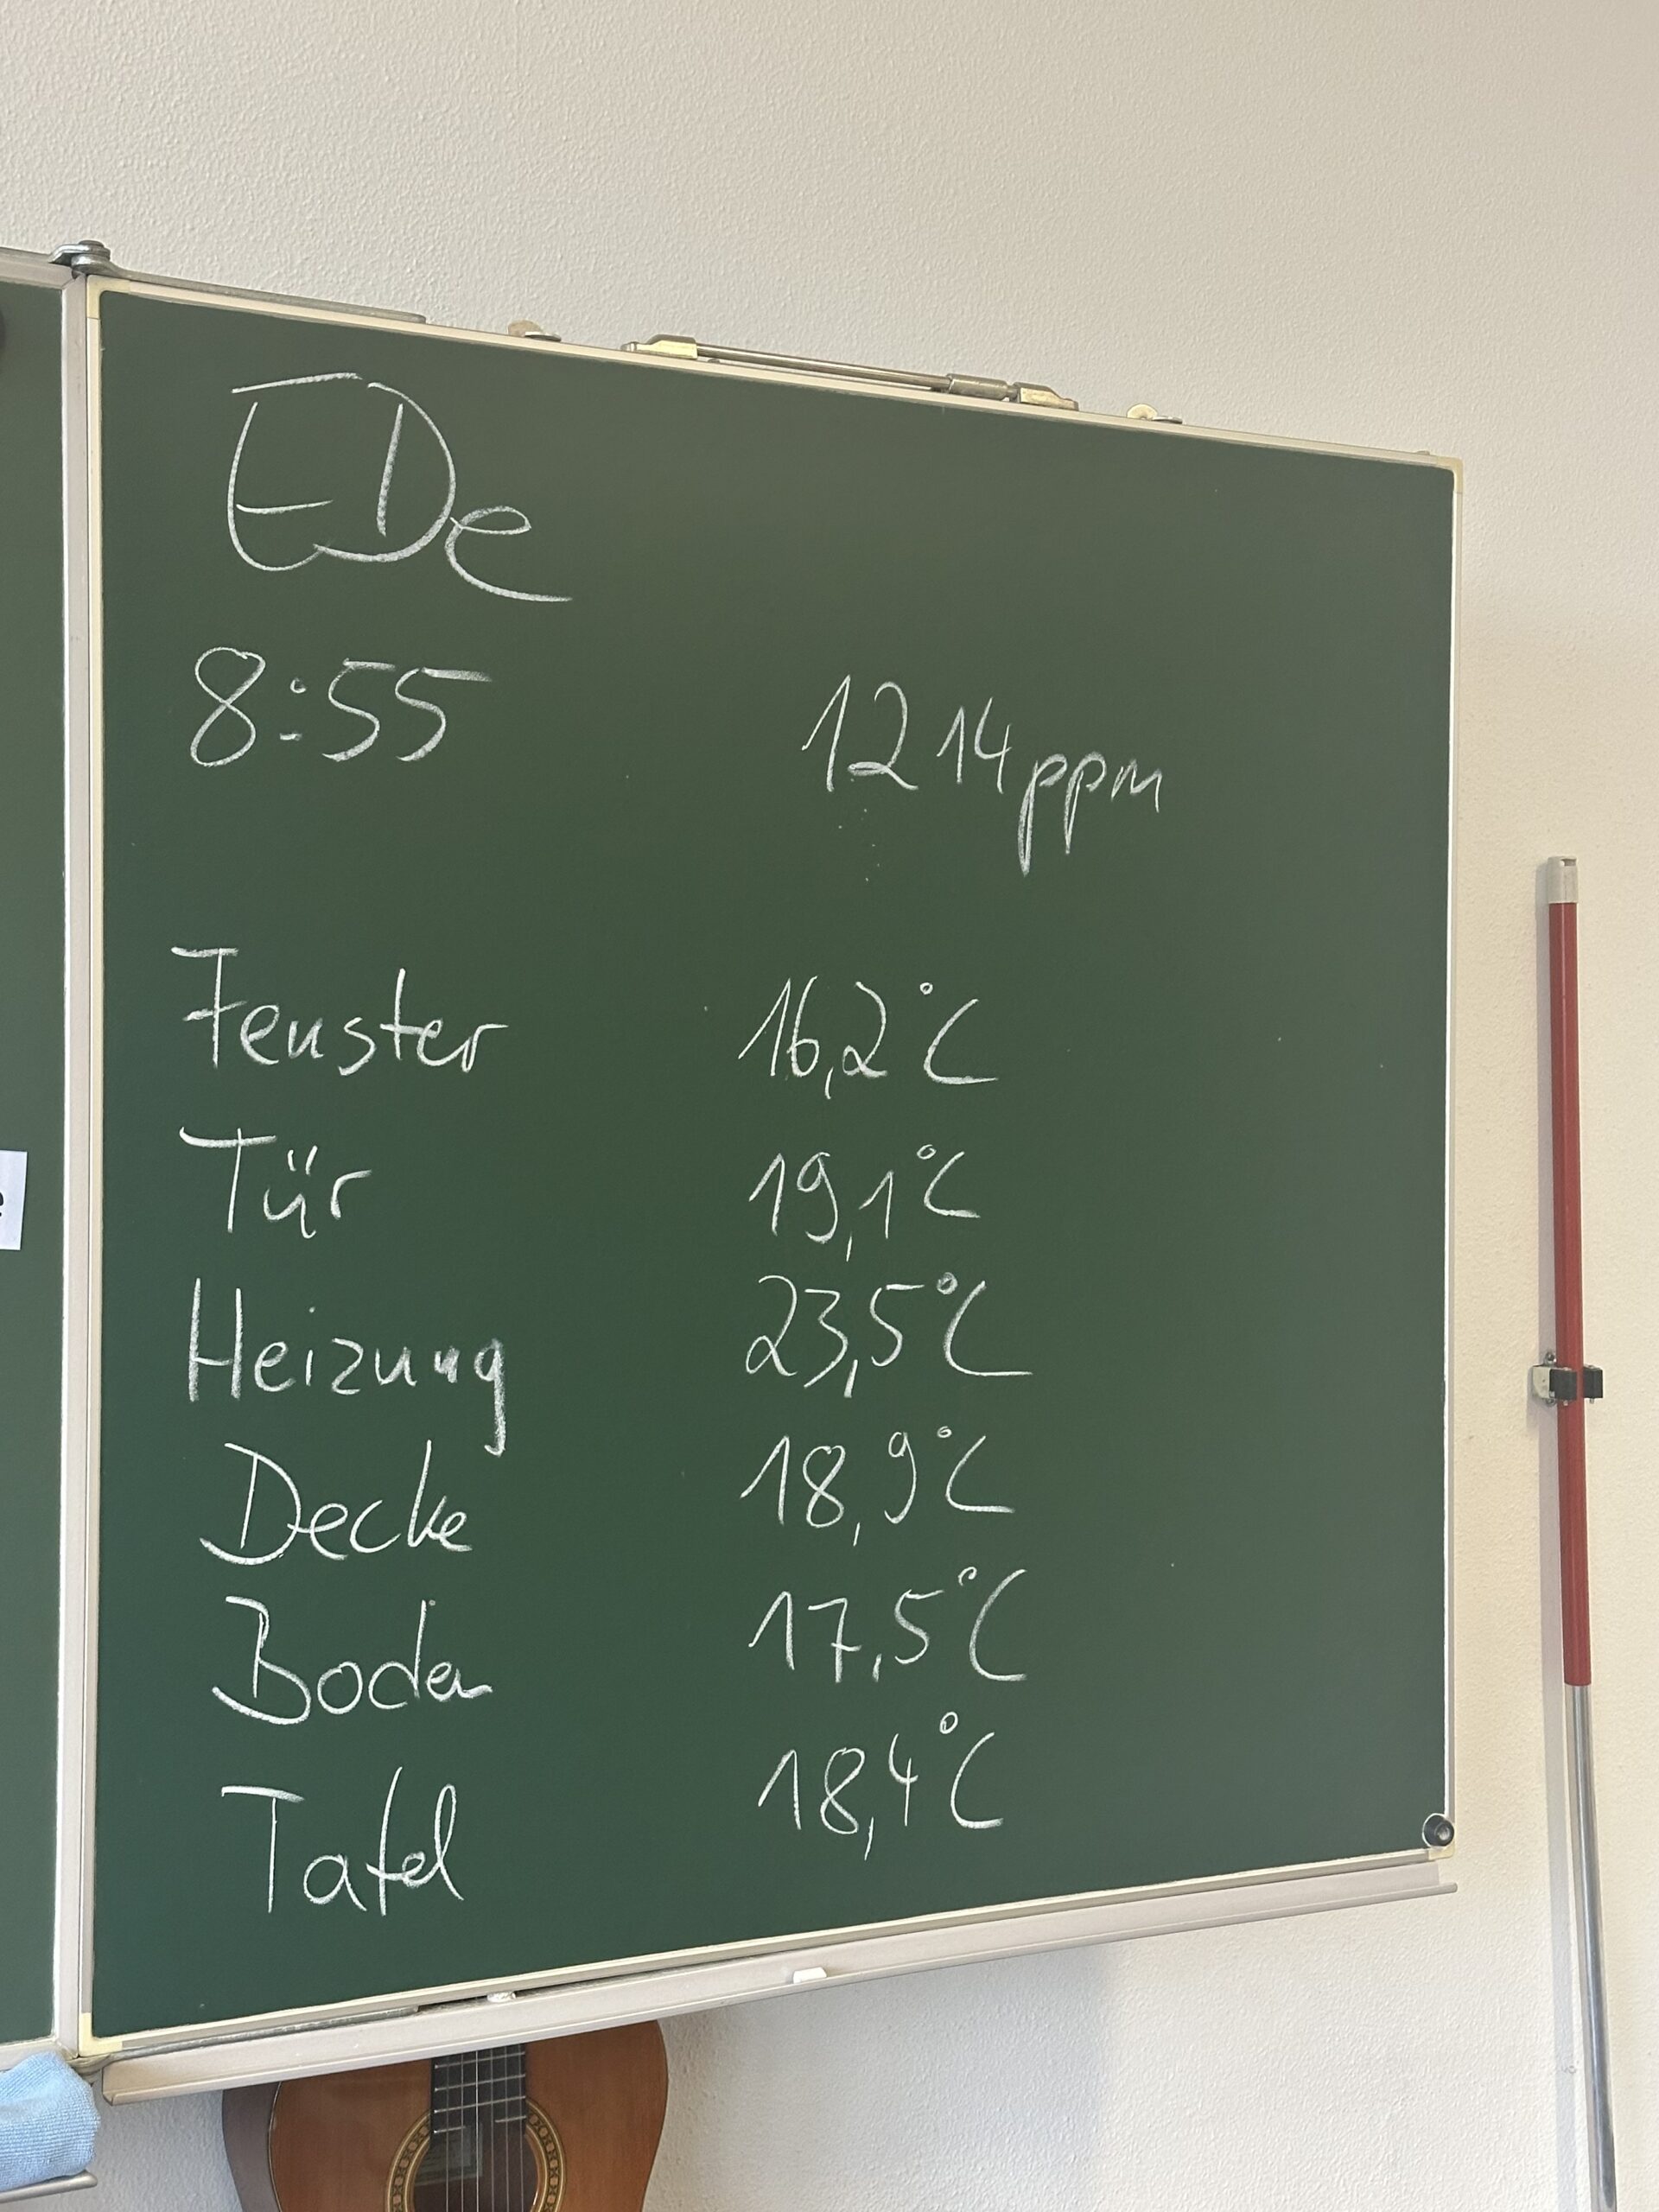 EDe
8:55 1214ppm
Fenster 16,2°C
Tür 19,1°C
Heizung 23,5°C
Decke 18,9°C
Boden 17,5°C
Tafel 18,4°C